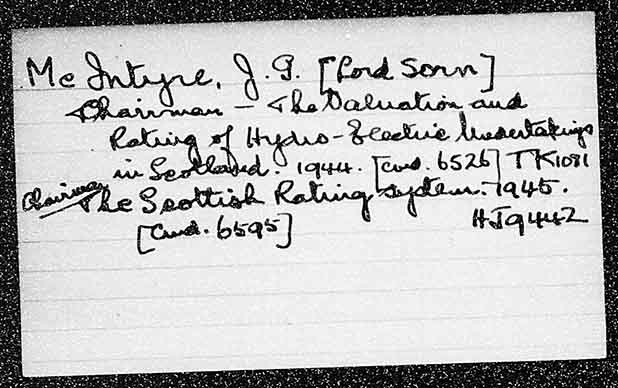 Mc Intyre, J. G. [Lord Sorn]
Chairman - The Valuation and
Rating of Hydro-Electric Undertakings
in Scotland. 1944. [cmd. 6526] TK1081
Chairman The Scottish Rating system. 1945.
[Cmd. 6595] HJ9442